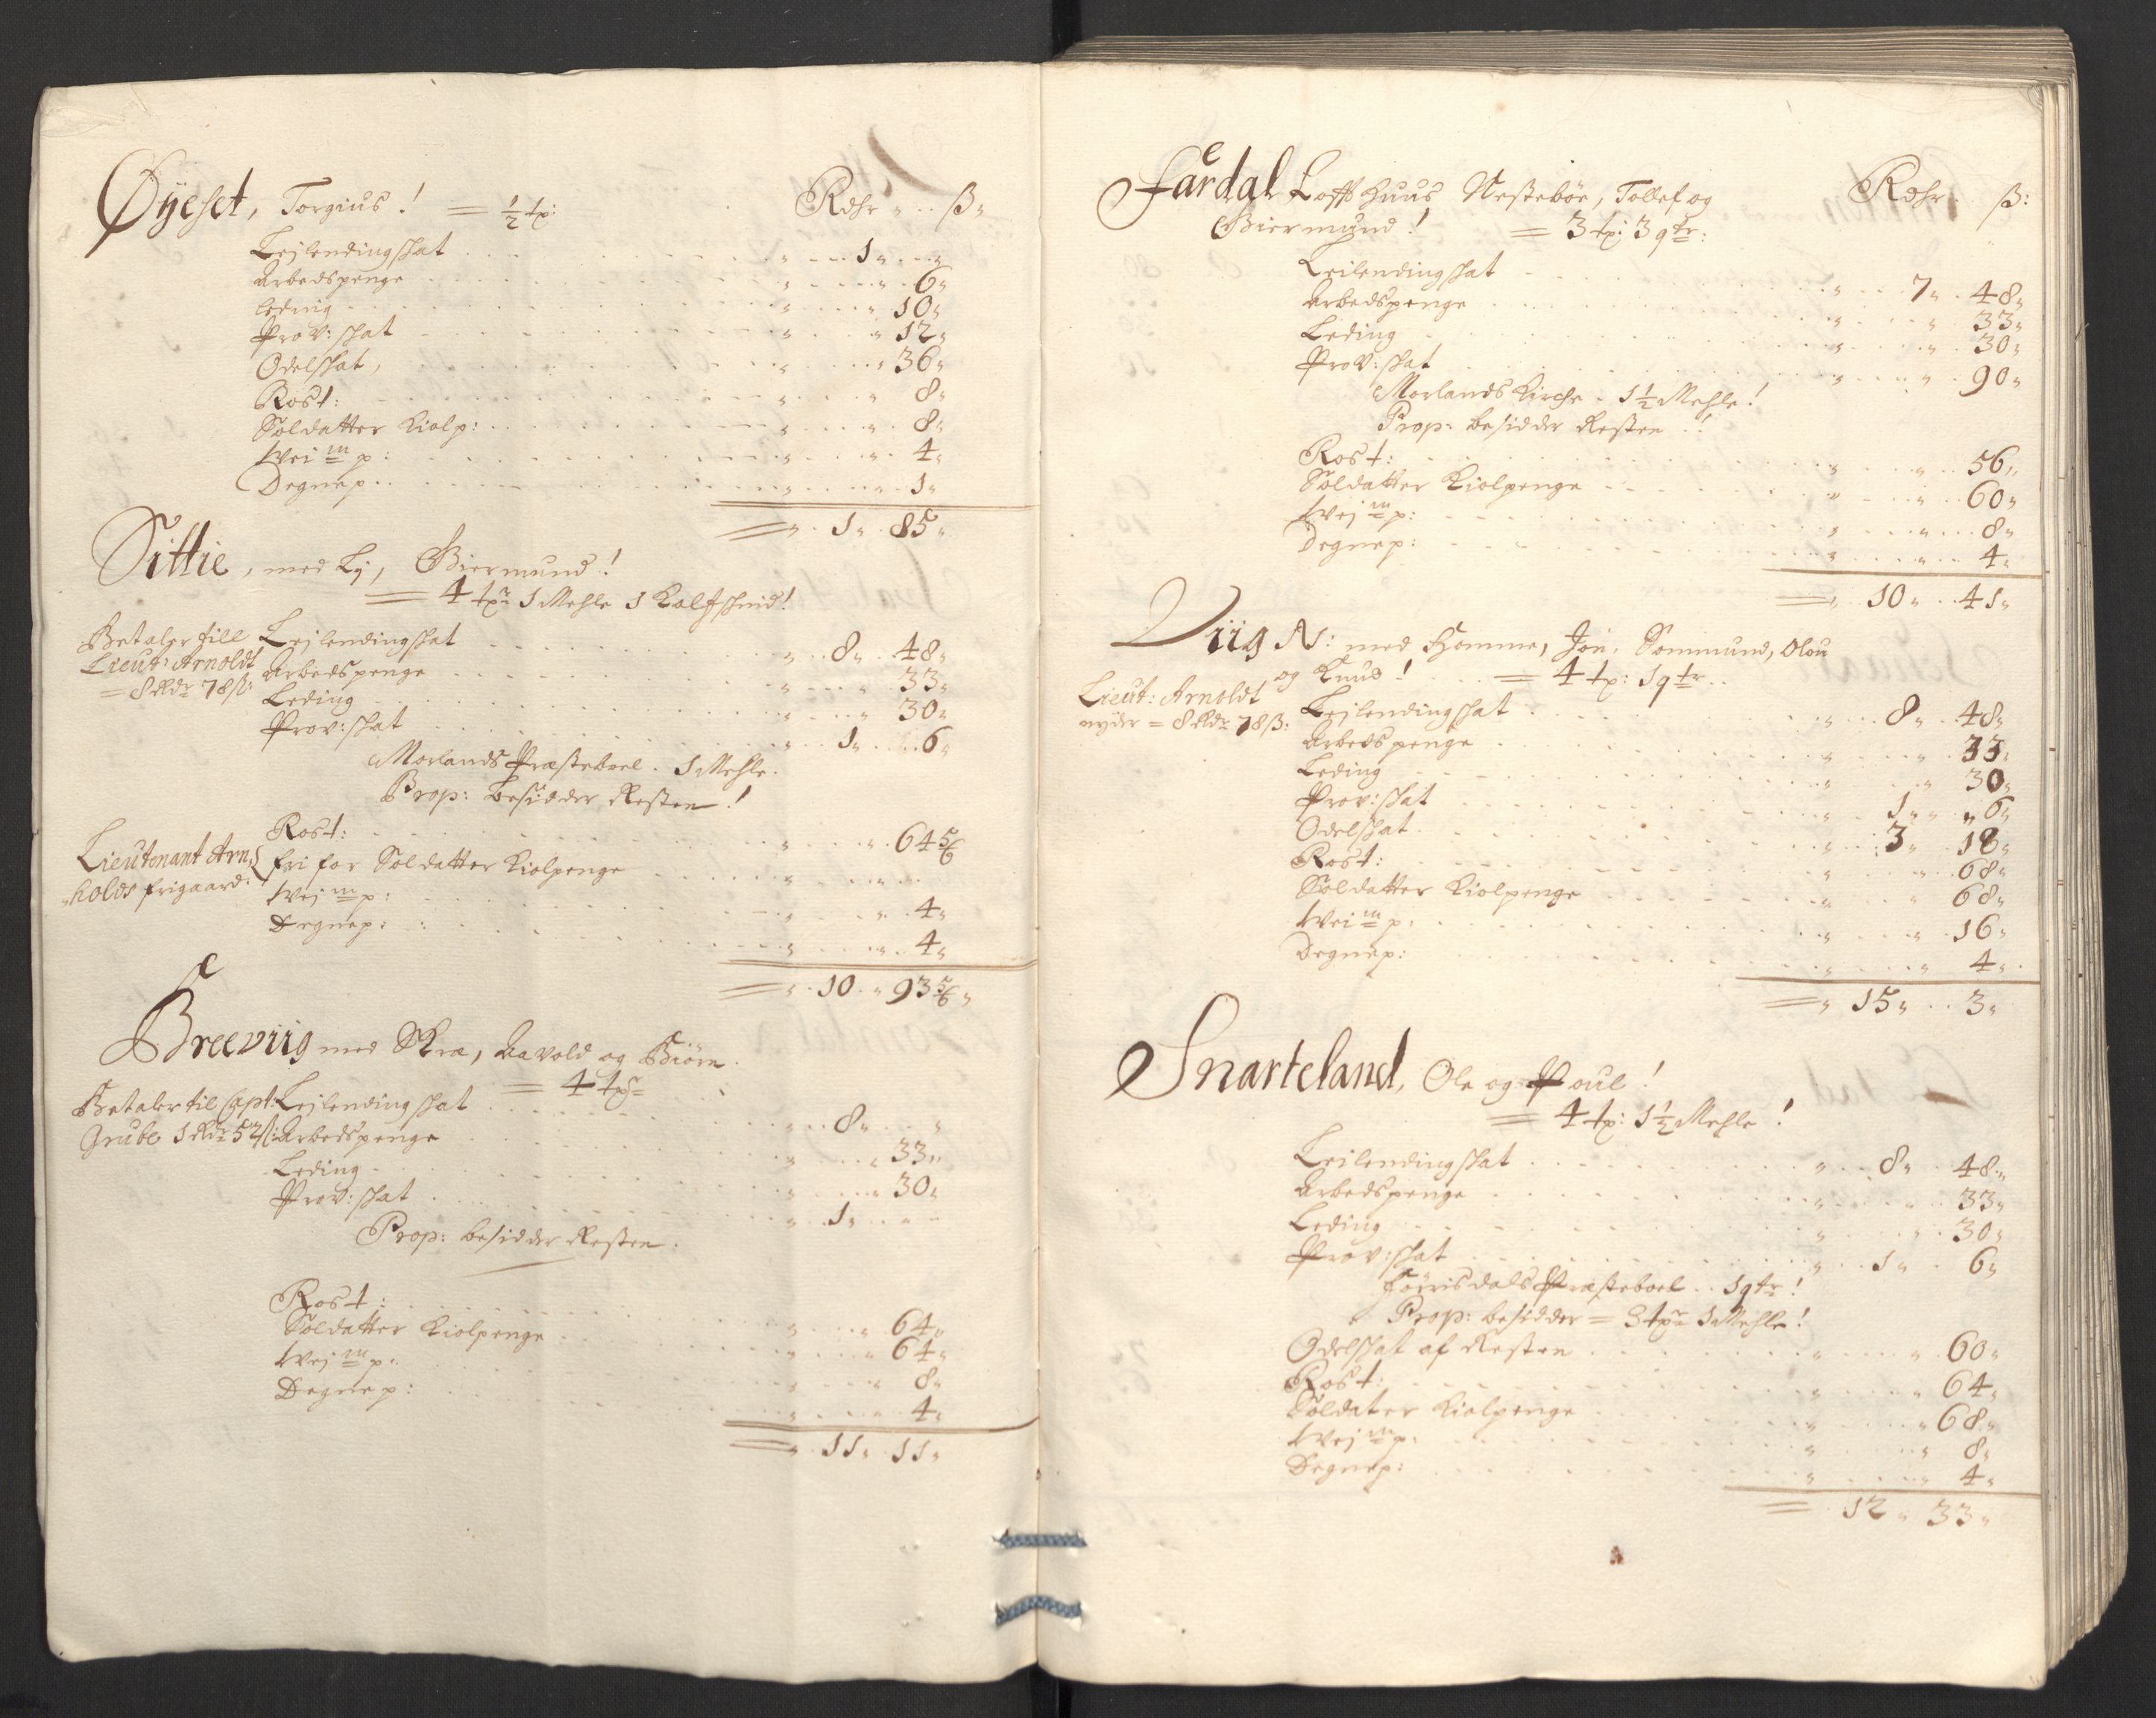 Øyeset, Torgius! = ½ tp: Rdhr ß
Leilendingschat 1
Arbedspenge 6
leding 10
Prov: schat 12
Odelschat, 36
Rost: 8
Soldatter Kiolp: 8
Wei m p: 4
Degnep: 1
= 1 85
Sittie, med Li, Biermund!
= 4 tpr 1 Mehle 1 Kalfschind!
Betaler till
Lieut: Arnoldt
= 8 Rdr 78 ß:
Lejlendingschat 8 48
Arbedspenge 33
Leding 30
Prov: schat 1 6
Morlands Præsteboel. 1 Mehle.
Prop: besidder Resten!
Lieutenant Arn-
holds frigaard.
Rost: 64 5/6
fri for Soldatter Kiolpenge
Wej m p: 4
Degnep: 4
= 10 93 5/6
Breeviig med Skræ, Aavold og Biørn.
= 4 tpr
Betaler til Capt:
Grube 1 Rdr 52 ß:
Lejlendingschat 8
Arbedspenge 33
Leding 30
Prov: schat 1
Prop: besidder Resten.
Rost: 64
Soldatter Kiolpenge 64
Wej m p: 8
Degnep: 4
= 11 11
Fardal Loffthuus Nestebøe, Tollef og Rdhr ß:
Biermund! = 3 tp: 3 qtr:
Leilendingschat 7 48
Arbedspenge 33
Leding 30
Prov: schat 90
Morlands Kirche - 1½ Mehle!
Prop: besidder Resten!
Rost: 56
Soldatter Kiolpenge 60
Wej m p: 8
Degnep: 4
= 10 41
Viig N: med Homme, Jon, Sommund, Olou
og Knud! = 4 tp: 1 qtr
Lieut: Arnoldt
nyder = 8 Rdr 78 ß:
Lejlendingschat 8 48
Arbedspenge 33
Leding 30
Prov: schat 1 6
Odelschat 3 18
Rost: 68
Soldatter Kiolpenge 68
Wei m p: 16
Degnep: 4
= 15 3
Snarteland, Ole og Poul!
= 4 tp: 1½ Mehle!
Leilendingschat 8 48
Arbedspenge 33
Leding 30
Prov: schat 1 6
Førrisdals Præsteboel 1 qtr!
Prop: besidder = 3 tpr 1 Mehle!
Odelschat af Resten 60
Rost: 64
Soldater Kiolpenge 68
Wej m p: 8
Degnep: 4
= 12 33